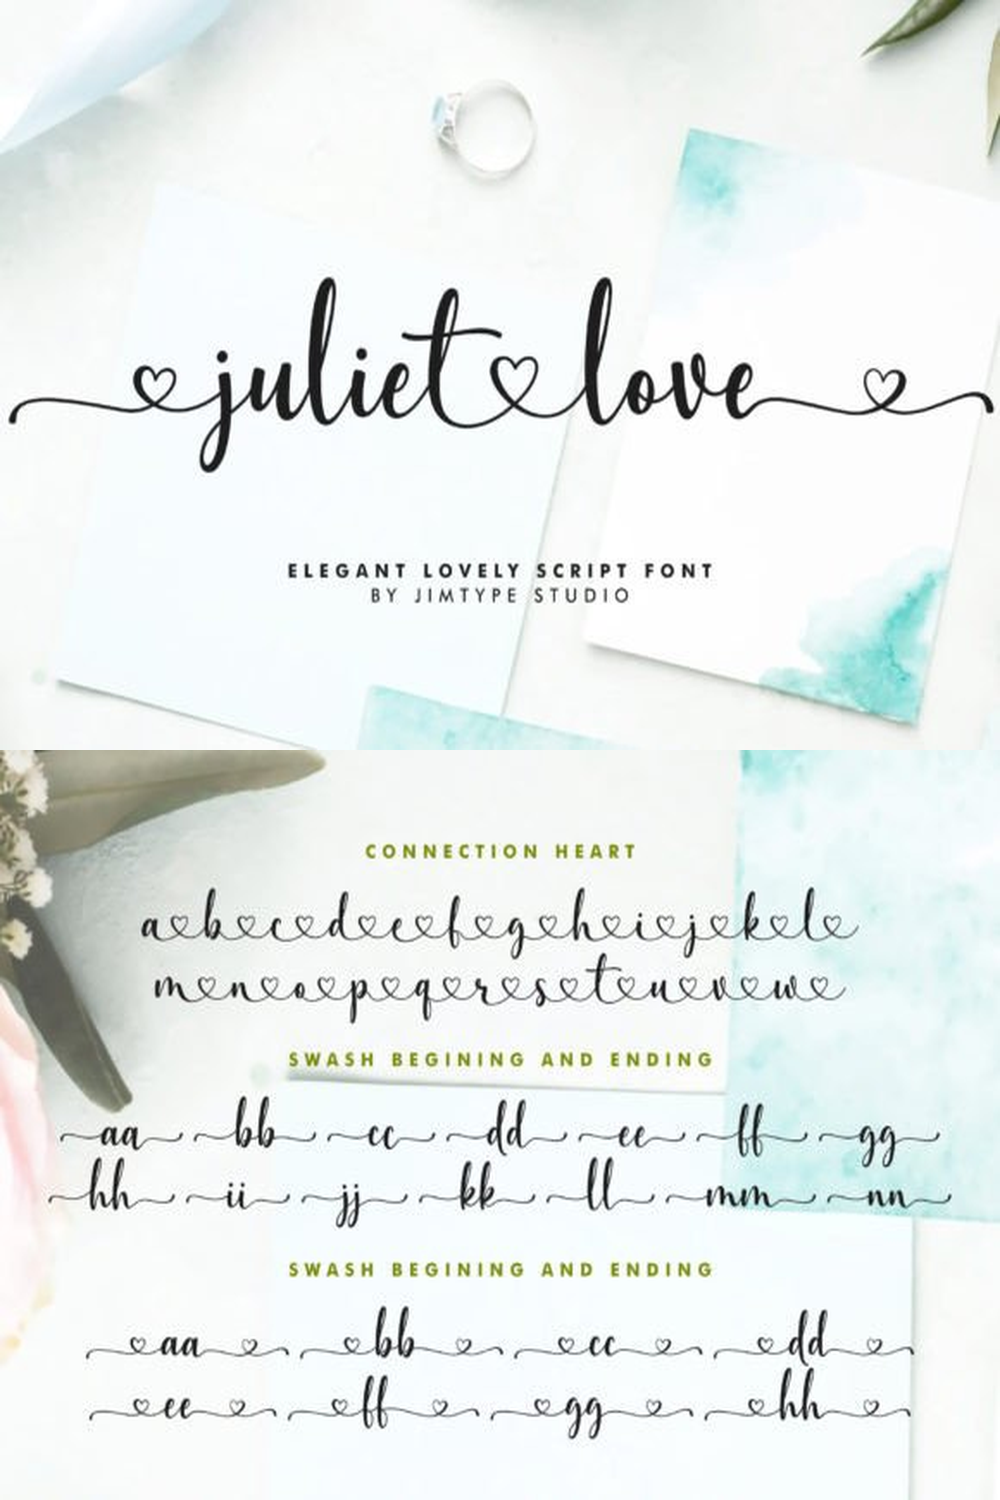 juliet love
ELEGANT LOVELY SCRIPT FONT
BY JIMTYPE STUDIO
CONNECTION HEART
a b c d e f g h i j k l
m n o p q r s t u v w
SWASH BEGINING AND ENDING
aa bb cc dd ee ff gg
hh ii jj kk ll mm nn
SWASH BEGINING AND ENDING
aa bb cc dd
ee ff gg hh